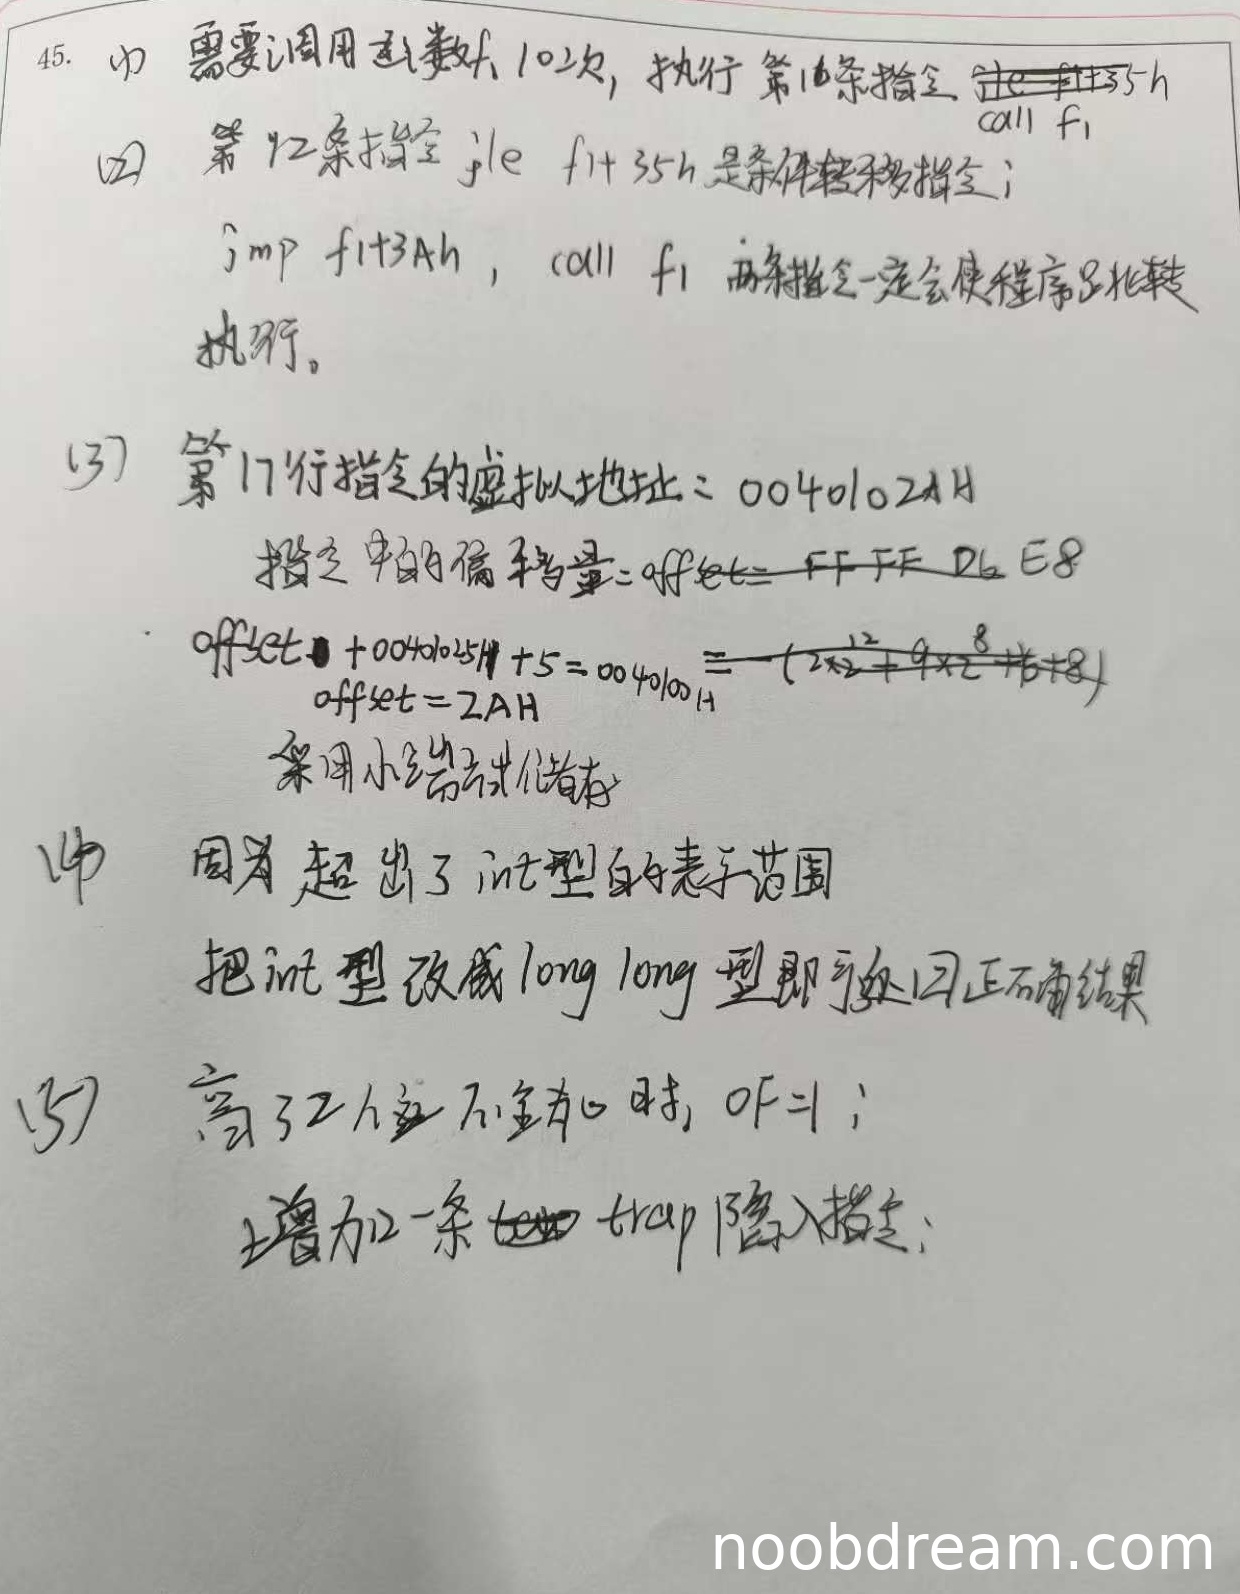 45. (1) 需要调用函数f1 10次, 执行 第16条指令 jle f1+35h
call f1
(2) 第12条指令 jle f1+35h 是条件转移指令;
jmp f1+3Ah, call f1 两条指令一定会使程序跳转
执行。
(3) 第17行指令的虚拟地址= 0040102AH
指令中的偏移量=offset= FF FF D6 E8
offset + 00401025H + 5 = 00401000H = -(2×2^12+9×2^8+6+8)
offset = 2AH
采用小端方式储存
(4) 因为 超出了 int型的表示范围
把int 型 改成 long long 型即可返回正确结果
(5) 高32位 不全为0 时, OF=1;
增加一条 trap 陷入指令;
noobdream.com